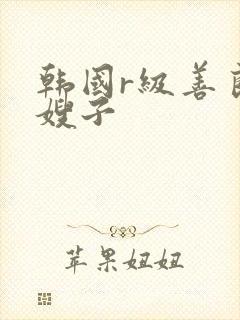 韩国r级善良
嫂子
苹果妞妞